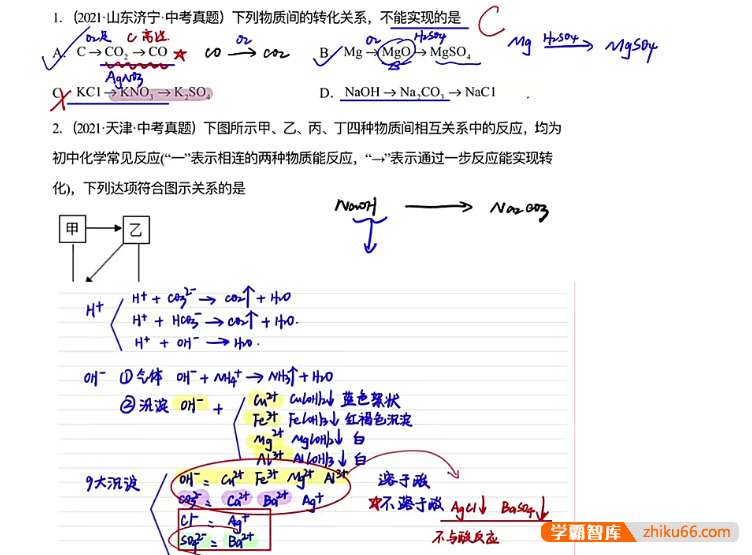 1. (2021·山东济宁·中考真题) 下列物质间的转化关系，不能实现的是 C
O₂足 C 高温
A. C→CO₂→CO ★ CO —O₂→ CO₂
O₂ H₂SO₄
B. Mg→MgO→MgSO₄ Mg —H₂SO₄→ MgSO₄
AgNO₃
C. KCl→KNO₃→K₂SO₄
D. NaOH→Na₂CO₃→NaCl
2. (2021·天津·中考真题) 下图所示甲、乙、丙、丁四种物质间相互关系中的反应，均为
初中化学常见反应(“一”表示相连的两种物质能反应，“→”表示通过一步反应能实现转
化)，下列达项符合图示关系的是
NaOH → Na₂CO₃
甲 乙
H⁺
H⁺ + CO₃²⁻ → CO₂↑ + H₂O
H⁺ + HCO₃⁻ → CO₂↑ + H₂O.
H⁺ + OH⁻ → H₂O.
OH⁻ ①气体 OH⁻ + NH₄⁺ → NH₃↑ + H₂O
②沉淀 OH⁻ +
Cu²⁺ Cu(OH)₂↓ 蓝色絮状
Fe³⁺ Fe(OH)₃↓ 红褐色沉淀
Mg²⁺ Mg(OH)₂↓ 白
Al³⁺ Al(OH)₃↓ 白
9大沉淀
OH⁻ = Cu²⁺ Fe³⁺ Mg²⁺ Al³⁺ 溶于酸
CO₃²⁻ = Ca²⁺ Ba²⁺ Ag⁺ ★不溶于酸 AgCl↓ BaSO₄↓
Cl⁻ = Ag⁺ 不与酸反应
SO₄²⁻ = Ba²⁺
学霸智库
zhiku66.com